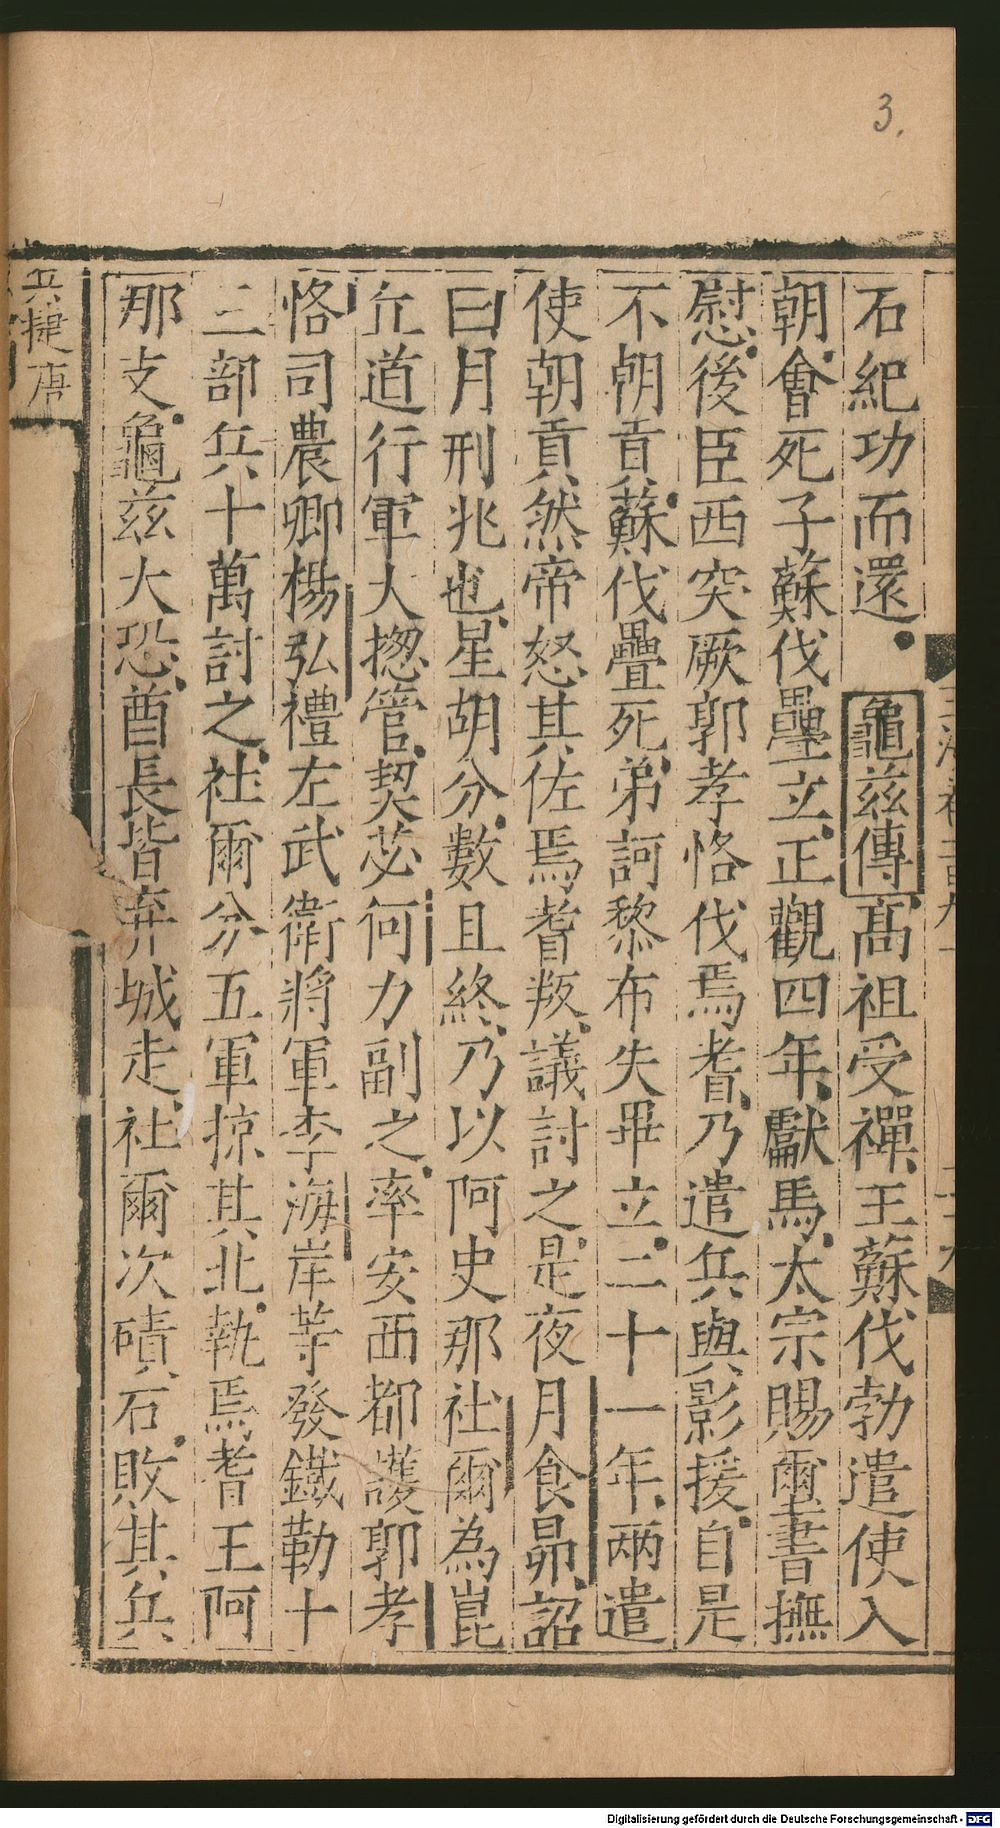 3.
石紀功而還龜兹傳高祖受禪王蘇伐勃遣使入
朝會死子蘇伐疊立正觀四年獻馬太宗賜璽書撫
慰後臣西突厥郭孝恪伐焉耆乃遣兵與影援自是
不朝貢蘇伐疊死弟訶黎布失畢立二十一年兩遣
使朝貢然帝怒其佐焉耆叛議討之是夜月食昴詔
曰月刑兆也星胡分數且終乃以阿史那社爾為崑
丘道行軍大揔管契苾何力副之率安西都護郭孝
恪司農卿楊弘禮左武衛將軍李海岸等發鐵勒十
二部兵十萬討之社爾分五軍掠其北執焉耆王阿
那支龜兹大恐酋長皆弃城走社爾次磧石敗其兵
兵捷唐
Digitalisierung gefördert durch die Deutsche Forschungsgemeinschaft - DFG